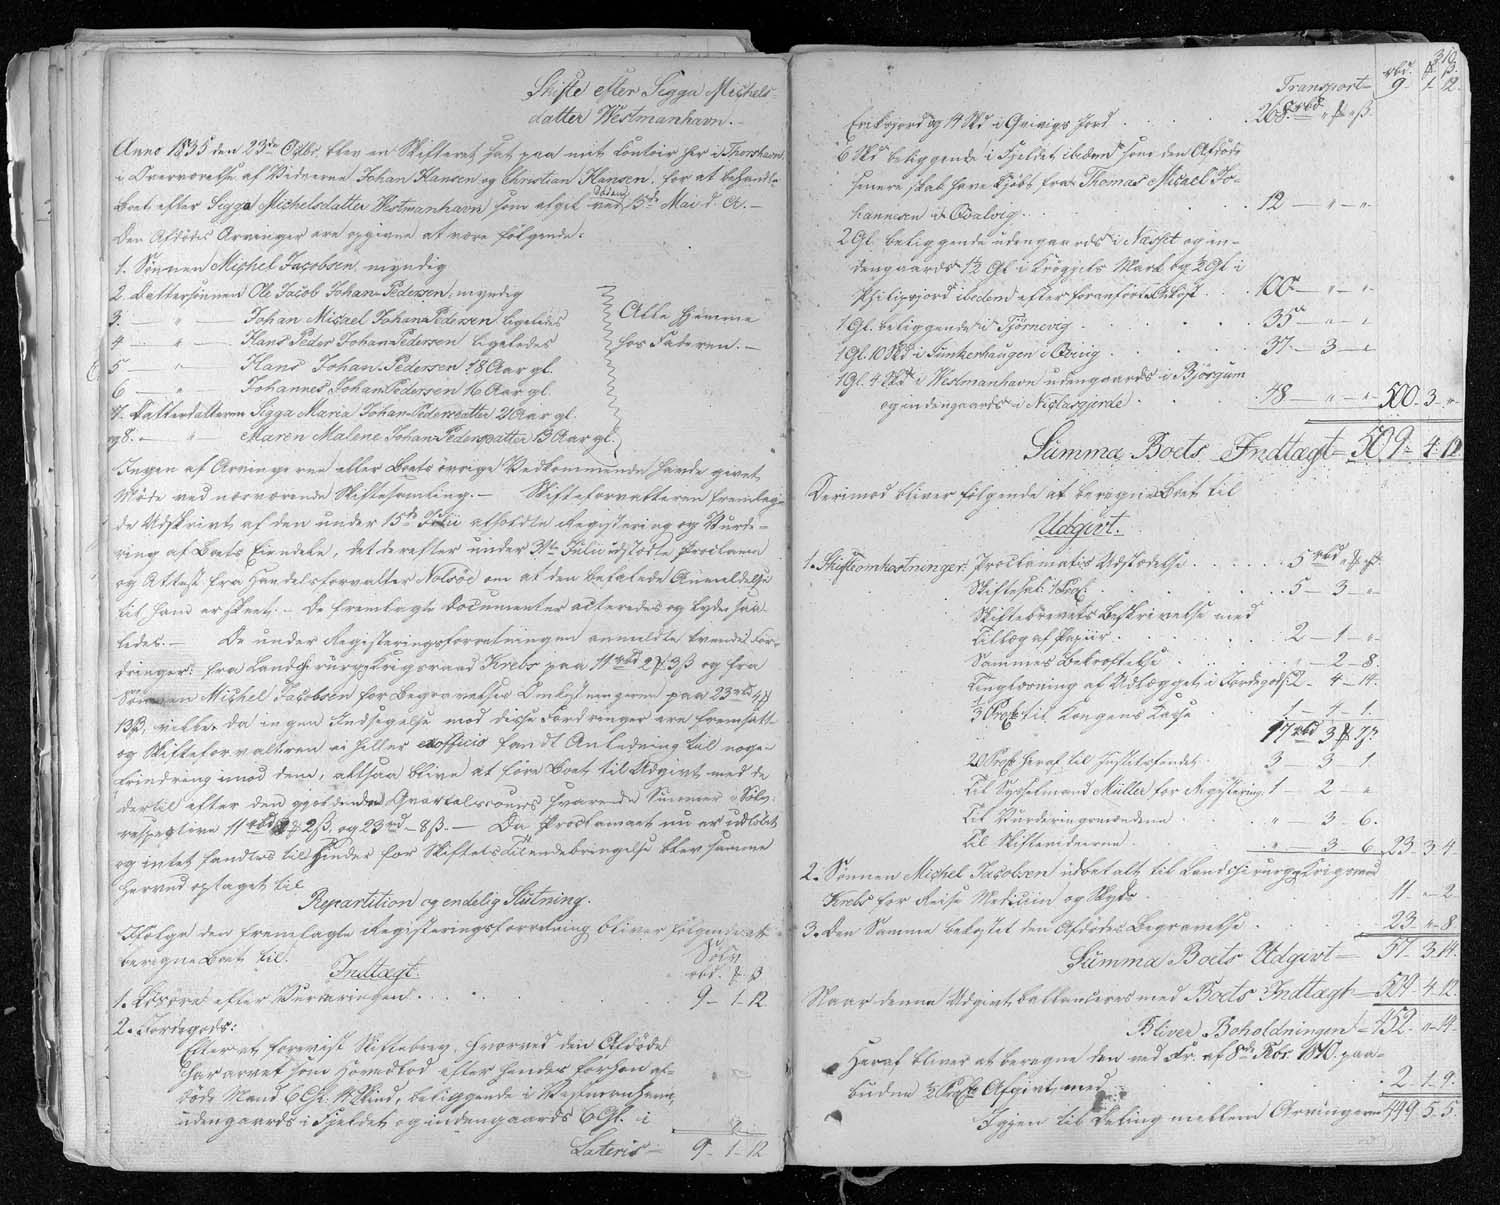 Skifte efter Sigga Michels-
datter Westmanhavn.
Anno 1835 den 23de Octbr. blev en Skifteret sat paa mit Contoir her i Thorshavn
i Overværelse af Vidnerne Johan Hansen og Christian Hansen, for at behandle
Boet efter Sigga Michelsdatter Westmanhavn som afgik ved Døden 15de Mai d. A.
Den Afdødes Arvinger ere opgivne at være følgende:
1. Sønnen Michel Jacobsen, myndig
2. Dattersønnen Ole Jacob Johan-Pedersen, myndig
3. — " — Johan Michael Johan-Pedersen ligeledes
4 — " — Hans Peder Johan-Pedersen ligeledes
5 — " — Hans Johan-Pedersen 18 Aar gl.
6 — " — Johannes Johan-Pedersen 16 Aar gl.
7. Datterdatteren Sigga Maria Johan-Pedersdatter 21 Aar gl.
og 8. — " — Maren Malene Johan-Pedersdatter 13 Aar gl.
Alle hjemme
hos Faderen.
Ingen af Arvingerne eller Boets øvrige Vedkommende havde givet
Møde ved nærværende Skiftesamling. — Skifteforvalteren fremlag-
de Udskrivt af den under 15de Julii afholdte Registering og Vurde-
ring af Boets Eiendele, det derefter under 31te Julii udstedte Proclama
og Attest fra Handelsforvalter Nolsøe om at den befalede Anmeldelse
til ham er skeet. — De fremlagte Documenter acteredes og lyde saa-
ledes. — De under Registeringsforretningen anmeldte tvende For-
dringer: fra Landchirurg Krigsraad Krebs paa 11 rbd 2 ℔ 3 ß og fra
Sønnen Michel Jacobsen for Begravelses Omkostningerne paa 23 rbd 4 ℔
13 ß, ville, da ingen Indsigelse mod disse Fordringer ere fremsatte
og Skifteforvalteren ei heller ex officio fandt Anledning til nogen
Erindring imod dem, altsaa blive at føre Boet til Udgivt med de
dertil efter den gjældende Qvartalscours svarende Summer i Sølv:
respective 11 rbd " ℔ 2 ß, og 23 rbd — 8 ß. — Da Proclamaet nu er udløbet
og intet fandtes til Hinder for Skiftets Tilendebringelse blev samme
herved optaget til
Repartition og endelig Slutning.
Ifølge den fremlagte Registeringsforretning bliver følgende at
beregne Boet til
Indtægt. Sølv
rbd. ℔. ß
1. Løsøre efter Vurderingen . . . 9 – 1 – 12
2. Jordegods:
Efter et forevist Skiftebrev, hvorved den Afdøde
har arvet som Hovedlod efter hendes forhen af-
døde Mand 6 Gl. 14 Skind, beliggende i Westmanhavn,
udengaards i Fjeldet og indengaards 6 Gl. i
Lateris = 9 – 1 – 12
310.
rbd. ℔ ß
Transport = 9 – 1 – 12.
Eriksjord og 14 Skd i Qvivigs Jord . . . 268 rbd " ℔ " ß.
6 Skd beliggende i Fjeldet ibidem som den Afdøde
senere skal have kjøbt fra Thomas Michel Jo-
hannesen i Qvalvig . . . 12 — " — "
2 Gl. beliggende udengaards i Nasset og in-
dengaards 1½ Gl. i Krøgjets Mark og ½ Gl. i
Philipsjord ibidem efter foranførte Skjøt . . . 100 — " — "
1 Gl. beliggende i Tjørnevig . . . 35 — " — "
1 Gl. 10 Skd i Funkerhaugen i Qvivig . . . 37 — 3 — "
1 Gl. 4 Skd i Westmanhavn udengaards i Bjørgum
og indengaards i Niclasgjerde . . . 48 — " — " 500 – 3 – "
Summa Boets Indtægt = 509 – 4 – 12
Derimod bliver følgende at beregne Boet til
Udgivt.
1. Skifteomkostninger: Proclamatis Udstædelse . . . 5 rbd " ℔ " ß.
Skiftesal: 1 Proc. . . . 5 – 3 – "
Skiftebrevets Beskrivelse med
Tillæg af Papiir . . . 2 – 1 – "
Sammes Bekræftelse . . . " – 2 – 8.
Tinglæsning af Udlægget i Jordegodset 2 – 4 – 14.
⅓ Proct. til Kongens Kasse 1 – 4 – 1.
17 rbd 3 ℔ 7 ß.
20 Proct. heraf til Justitsfondet . 3 – 3 1.
Til Sysselmand Müller for Registering 1 – 2 – "
Til Vurderingsmændene . . . " – 3 – 6.
Til Skiftevidnerne . . . " – 3 – 6 23. 3. 4.
2. Sønnen Michel Jacobsen udbetalt til Landchirurg Krigsraad
Krebs for Reise Medicin og Skyds . . . 11 – " – 2
3. Den Samme bekostet den Afdødes Begravelse . . . 23 – " – 8
Summa Boets Udgivt = 57 – 3 – 14.
Naar denne Udgivt ballanceres med Boets Indtægt = 509 – 4 – 12.
Bliver Beholdningen = 452 – " – 14.
Heraf bliver at beregne den ved Fr. af 8de Febr. 1810 paa-
budne ½ Proct. Afgivt med . . . 2 – 1 – 9.
Igjen til Deling mellem Arvingerne 449 5. 5.